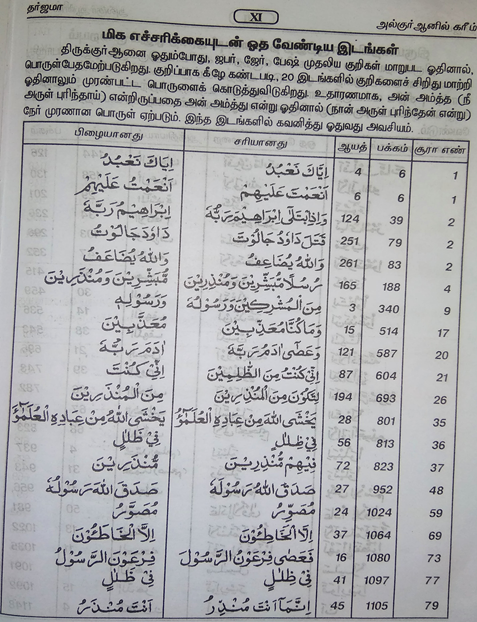 தர்ஜமா
XI
அல்குர்ஆனில் கரீம்
மிக எச்சரிக்கையுடன் ஓத வேண்டிய இடங்கள்
திருக்குர்ஆனை ஓதும்போது, ஜபர், ஜேர், பேஷ் முதலிய குறிகள் மாறுபட ஓதினால்,
பொருள்பேதமேற்படுகிறது. குறிப்பாக கீழே கண்டபடி, 20 இடங்களில் குறிகளைச் சிறிது மாற்றி
ஓதினாலும் முரண்பட்ட பொருளைக் கொடுத்துவிடுகிறது. உதாரணமாக, அன் அம்த்த (நீ
அருள் புரிந்தாய்) என்றிருப்பதை அன் அம்த்து என்று ஓதினால் (நான் அருள் புரிந்தேன் என்று)
நேர் முரணான பொருள் ஏற்படும். இந்த இடங்களில் கவனித்து ஓதுவது அவசியம்.
பிழையானது சரியானது ஆயத் பக்கம் சூரா எண்
اِيَاكَ نَعْبُدُ اِيَّاكَ نَعْبُدُ 4 6 1
اَنْعَمْتُ عَلَيْهِمْ اَنْعَمْتَ عَلَيْهِمْ 6 6 1
اِبْرَاهِيْمُ رَبَّهٗ وَاِذِابْتَلٰٓى اِبْرَاهِيْمَ رَبُّهٗ 124 39 2
دَاوٗدَ جَالُوْتُ قَتَلَ دَاوٗدُ جَالُوْتَ 251 79 2
وَاللّٰهُ يُضَاعَفُ وَاللّٰهُ يُضَاعِفُ 261 83 2
مُّبَشَّرِيْنَ وَمُنْذَرِيْنَ رُسُلًا مُّبَشِّرِيْنَ وَمُنْذِرِيْنَ 165 188 4
وَرَسُوْلِهٖ مِنَ الْمُشْرِكِيْنَ وَرَسُوْلُهٗ 3 340 9
مُعَذَّبِيْنَ وَمَا كُنَّا مُعَذِّبِيْنَ 15 514 17
اٰدَمَ رَبُّهٗ وَعَصٰٓى اٰدَمُ رَبَّهٗ 121 587 20
اِنِّيْ كُنْتَ اِنِّيْ كُنْتُ مِنَ الظّٰلِمِيْنَ 87 604 21
مِنَ الْمُنْذَرِيْنَ لِتَكُوْنَ مِنَ الْمُنْذِرِيْنَ 194 693 26
يَخْشَى اللّٰهُ مِنْ عِبَادِهِ الْعُلَمٰٓؤُ يَخْشَى اللّٰهَ مِنْ عِبَادِهِ الْعُلَمٰٓؤُ 28 801 35
فِيْ ظِلٰلٍ 56 813 36
مُنْذَرِيْنَ فِيْهِمْ مُّنْذِرِيْنَ 72 823 37
صَدَقَ اللّٰهَ رَسُوْلُهٗ صَدَقَ اللّٰهُ رَسُوْلَهُ 27 952 48
مُصَوَّرُ مُصَوِّرُ 24 1024 59
اِلَّا الْخَاطَئُوْنَ اِلَّا الْخَاطِئُوْنَ 37 1064 69
فِرْعَوْنَ الرَّسُوْلُ فَعَصٰى فِرْعَوْنُ الرَّسُوْلَ 16 1080 73
فِيْ ظِلٰلٍ 41 1097 77
اَنْتَ مُنْذَرُ اِنَّمَآ اَنْتَ مُنْذِرُ 45 1105 79